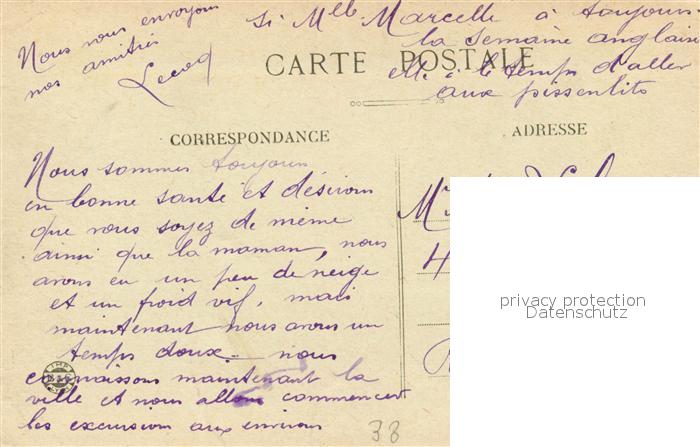 Nous vous envoyons
nos amitiés
Lecoq
si Mlle Marcelle à toujours
la semaine anglaise
elle à le temps d'aller
aux pissenlits
CARTE POSTALE
CORRESPONDANCE
Nous sommes toujours
en bonne santé et désirons
que vous soyez de même
ainsi que la maman, nous
avons eu un peu de neige
et un froid vif, mais
maintenant nous avons un
temps doux. nous
connaissons maintenant la
ville et nous allons commencer
les excursion aux environs
38
ADRESSE
privacy protection
Datenschutz